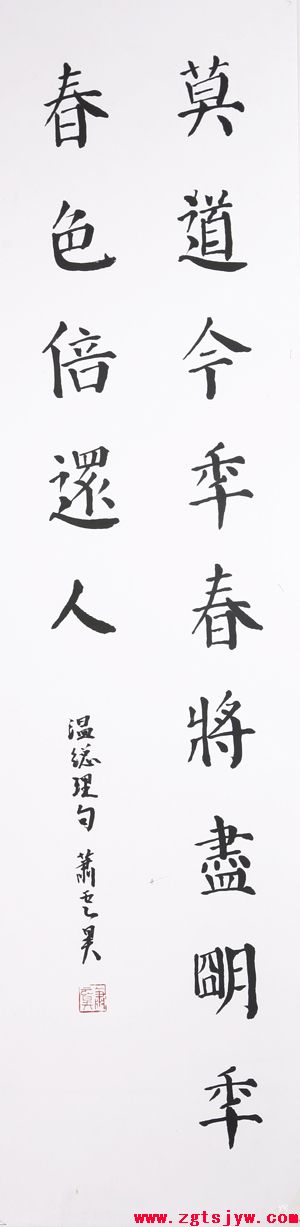 莫道今年春將盡明年
春色倍還人
温總理句 蕭雲昊
www.zgtsjyw.com